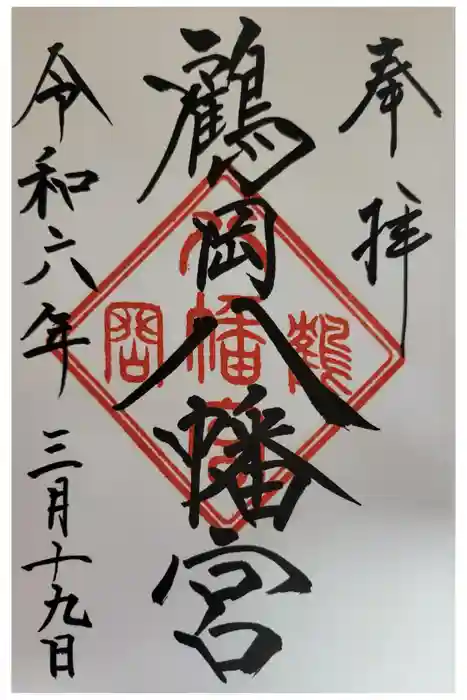 奉拝
鶴岡八幡宮
令和六年三月十九日